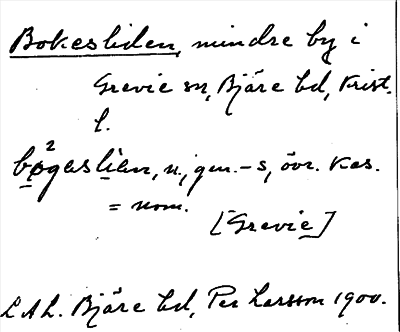 Bokesliden, mindre by i
Grevie sn, Bjäre hd, Krist.
l.
bø²gaslian, n., gen. -s, övr. kas.
= nom.
[Grevie]
L A L. Bjäre hd, Per Larsson 1900.